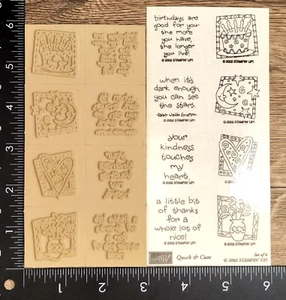 birthdays are
good for you-
the more
you have,
the longer
you live!
© 2002 STAMPIN' UP!
© 2002 STAMPIN' UP!
when it's
dark enough,
you can see
the stars.
Ralph Waldo Emerson
© 2002 STAMPIN' UP!
© 2002 STAMPIN' UP!
your
kindness
touches
my
heart.
© 2002 STAMPIN' UP!
a little bit
of thanks
for a
whole lot of
nice!
© 2002 STAMPIN' UP!
© 2002 STAMPIN' UP!
Quick & Cute
Set of 8
© 2002 STAMPIN' UP!
1
2
3
4
5
6
1
2
3
4
5
6